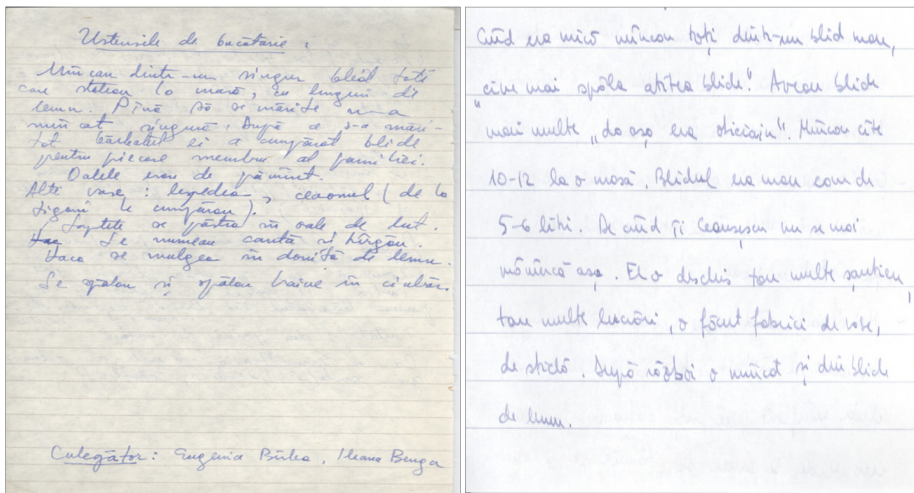 Ustensile de bucătărie.
Mîncau dintr-un singur blid toți
care stăteau la masă, cu linguri de
lemn. Pînă să se mărite n-a
mîncat singură. După ce s-a mări-
tat bărbatul ei a cumpărat blide
pentru fiecare membru al familiei.
Oalele erau de pămînt.
Alte vase: lespedea, ceaonul (de la
țigani le cumpărau).
Laptele se păstra în oale de lut.
Se numeau cantă și tîrgău.
Vaca se mulgea în doniță de lemn.
Se spălau și spălau haine în ciubăr.
Culegător: Eugenia Bîrlea, Ileana Benga
Cînd era mică mîncau toți dintr-un blid mare,
"cine mai spăla atîtea blide". Aveau blide
mai multe "da așa era obiceiu". Mîncau cîte
10-12 la o masă. Blidul era mare cam de
5-6 litri. De cînd îi Ceaușescu nu se mai
mănîncă așa. El o deschis tare multe șantiere,
tare multe lucrări, o făcut fabrici de vase,
de sticlă. După război o mîncat și din blide
de lemn.